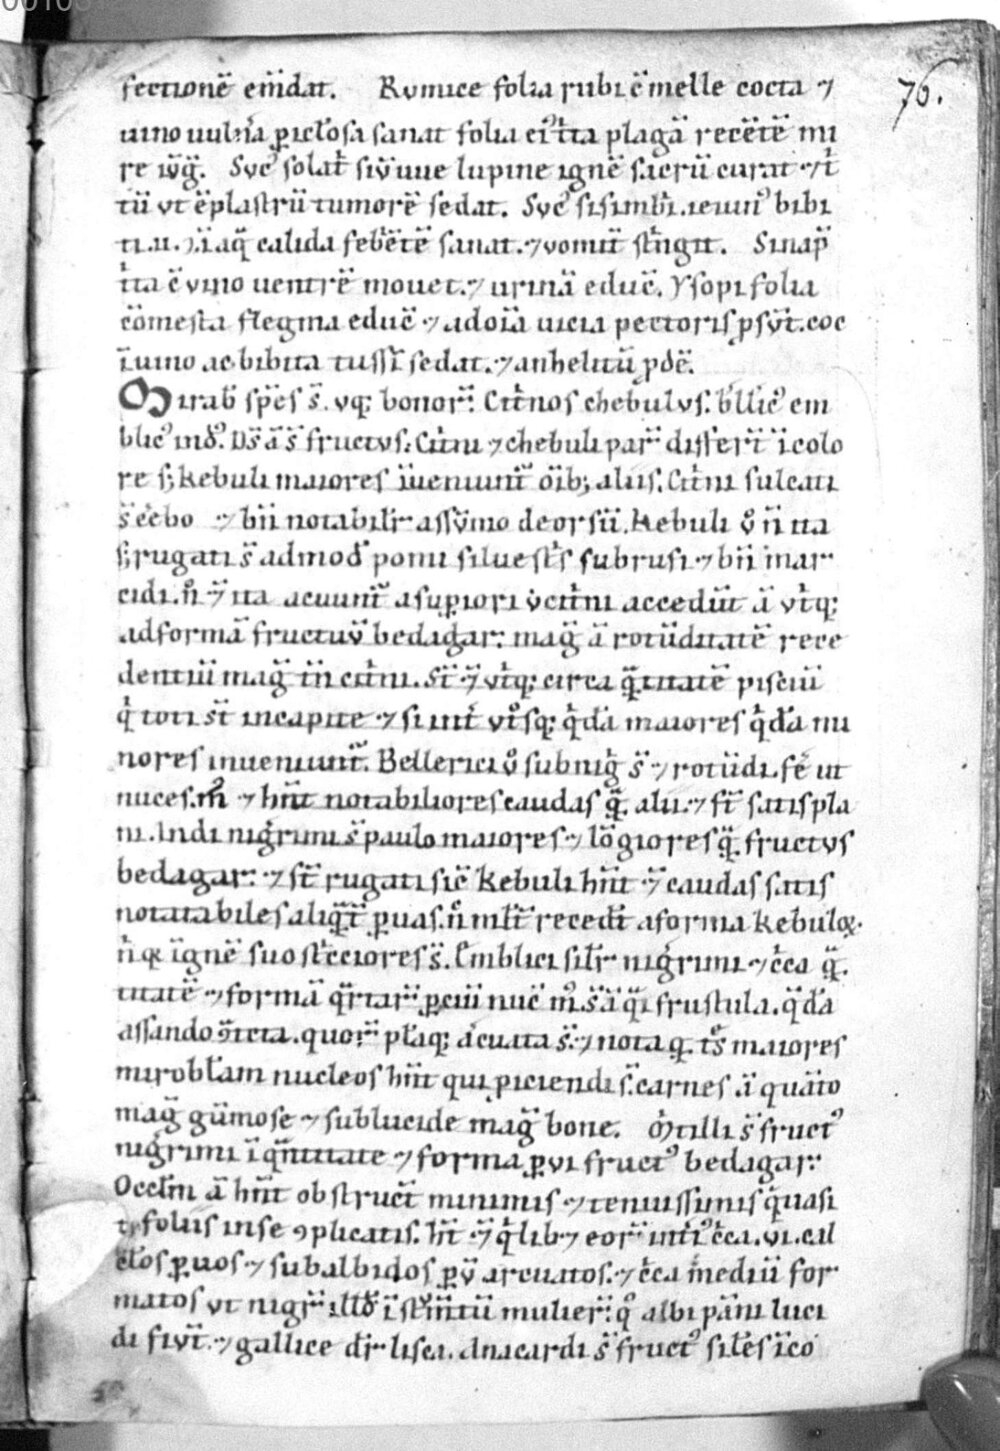 00106
76.
fectionē em̄dat. Rumice folia rubi c̄ melle cocta ⁊
uino uuln̄a ꝑiclosa sanat folia ei' t̓ta plagā recētē mi
re iūḡ. Suc' solat̓ siū uue lupine ignē sacrū curat ⁊ t̓
tū ut ēplastrū tumorē sedat. Suc' sisimbr̓. ieiun' bibi
ti .ii. ℈. ī aq̄ calida feb̓ētē sanat. ⁊ vomitū st̓ngit. Sinap̄
t̓ta c̄ vino uentrē mouet. ⁊ urinā educ̄. ysopi folia
cōmesta flegma educ̄ ⁊ ad oīa uicia pectoris ꝓsūt. coc
ī uino ac bibita tussī sedat. ⁊ anhelitū ꝓdē.
Mirab̄ sp̄es s̄. vqꝫ bonor̄. Cit̓nos chebulus. bl̄lic' em
blic' ind'. Ds̄ ā s̄ fructus. Cit̓ni ⁊ chebuli par̄ differt̄ ī colo
re sꝫ kebuli maiores īueniunt̄ oībꝫ aliis. Cit̓ni sulcati
⁊ bn̄ notabilr̄ assūmo deorsū. Kebuli u̓ n̄ ita
sꝫ rugati s̄ admod' pomi siluest̓s subrufi ⁊ bn̄ mar
cidi. n̓ ⁊ ita acuunt̄ a suꝑiori u̓ cit̓ni accedūt ā vt̓qꝫ
ad formā fructuū bedagar: maḡ ā rotūditatē rece
dentiū maḡ tn̄ cit̓ni. St̄ ⁊ vt̓qꝫ circa q̄titatē pisciū
q̓ toti st̄ in capite ⁊ si int̓ vt̓sqꝫ q̓dā maiores q̓dā mi
nores inueniunt̄. Bellerici u̓ subnig̓ s̄ ⁊ rotūdi. fe' ut
nuces. m̓ ⁊ hn̄t notabiliores caudas q̄ alii. ⁊ st̄ satis pla
ni. Indi nig̓rimi s̄ paulo maiores ⁊ lōgiores q̄. fructus
bedagar: ⁊ st̄ rugati sic̄ kebuli hn̄t ⁊ caudas satis
notatabiles aliq̄t̄ ꝑuas. n̓ ml̄t̄ recedt̄ a forma kebuloꝝ.
ignē suo st̓cciores s̄. Emblici silr̄ nig̓rimi ⁊ c̓ca q̄
titatē ⁊ formā q̄rtar̄ ꝑciū nuc̄ m̓. s̄ ā q̄i frustula. q̄dā
assando ꝯt̓cta. quor̄ pl̄aqꝫ acuata s̄. ⁊ nota q̄. ts̓ maiores
mirobl̄am nucleos hn̄t qui ꝓiciendi s̄. carnes ā quāto
maḡ gūmose ⁊ sublucide maḡ bone. Mirtilli s̄ fruct'
nig̓rimi ī qn̄titate ⁊ forma ꝑui fruct' bedagar:
Occl̄m ā hn̄t obstruct̄ minimis ⁊ tenuissimis q̓uasi
foliis in se ꝯplicatis. hn̄t ⁊ q̓libꝫ eor̄ int̓i' c̓ca. vi. cal
cl̓os ꝑuos ⁊ subalbidos ꝑū arcuatos. ⁊ c̓ca mediū for
matos ut nigr̄ illd' ī st̄m̄tū mulier: q' albi pāni luci
di fiūt. ⁊ gallice dr̄ lisci. Anacardi s̄ fruct' sil̓es ī co